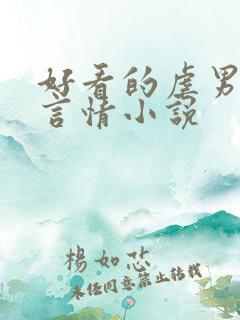 好看的虐男
言情小说
楊如芯
未经同意禁止转载